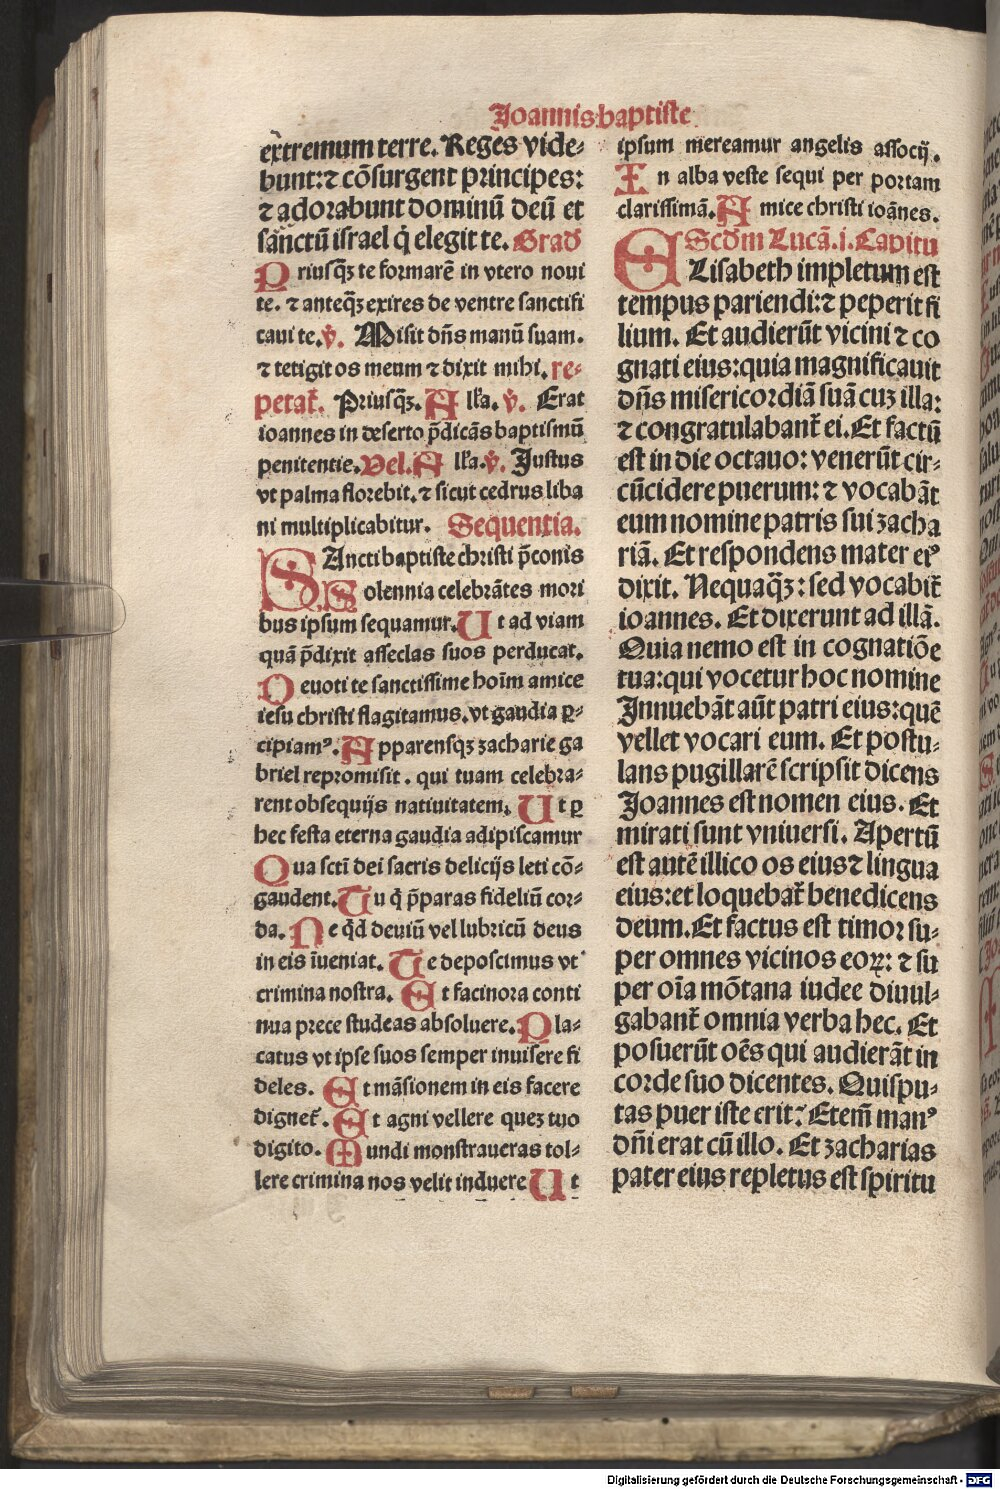 Joannis baptiste
extremum terre. Reges vide⸗
bunt: ⁊ cōsurgent principes:
⁊ adorabunt dominū deū et
sanctū israel q̇ elegit te. Grad̄
Priusq̄ꝫ te formarē in vtero noui
te. ⁊ anteq̄ꝫ exires de ventre sanctifi
caui te. v̄. Misit dn̄s manū suam.
⁊ tetigit os meum ⁊ dixit mihi. re⸗
petat᷑. Priusq̄ꝫ. All'a. v̄. Erat
ioannes in deserto p̄dicās baptismū
penitentie. Vel. All'a. v̄. Justus
vt palma florebit. ⁊ sicut cedrus liba
ni multiplicabitur. Sequentia.
SAncti baptiste christi p̄conis
Solennia celebrātes mori
bus ipsum sequamur. Ut ad viam
quā p̄dixit asseclas suos perducat.
Deuoti te sanctissime hoīm amice
iesu christi flagitamus. vt gaudia ꝑ⸗
cipiamꝰ. Apparensqꝫ zacharie ga
briel repromisit. qui tuam celebra⸗
rent obsequijs natiuitatem. Ut ꝑ
hec festa eterna gaudia adipiscamur
Qua scti̅ dei sacris delicijs leti cō⸗
gaudent. Tu q̇ p̄paras fideliū cor⸗
da. Ne qd̄ deuiū vel lubricū deus
in eis īueniat. Te deposcimus vt
crimina nostra. Et facinora conti
nua prece studeas absoluere. Pla⸗
catus vt ipse suos semper inuisere fi
deles. Et māsionem in eis facere
dignet᷑. Et agni vellere quez tuo
digito. Mundi monstraueras tol⸗
lere crimina nos velit induere Ut
ipsum mereamur angelis associj.
In alba veste sequi per portam
clarissimā. Amice christi ioānes.
Scd̄m Lucā. i. Capitu
ELisabeth impletum est
tempus pariendi: ⁊ peperit fi
lium. Et audierūt vicini ⁊ co
gnati eius: quia magnificauit
dn̄s misericordiā suā cuz illa:
⁊ congratulabant᷑ ei. Et factū
est in die octauo: venerūt cir⸗
cūcidere puerum: ⁊ vocabāt
eum nomine patris sui zacha
riā. Et respondens mater eiꝰ
dixit. Nequaq̄ꝫ: sed vocabit᷑
ioannes. Et dixerunt ad illā.
Quia nemo est in cognatiōe
tua: qui vocetur hoc nomine
Innuebāt aūt patri eius: quē
vellet vocari eum. Et postu⸗
lans pugillarē scripsit dicens
Joannes est nomen eius. Et
mirati sunt vniuersi. Apertū
est autē illico os eius ⁊ lingua
eius: et loquebat᷑ benedicens
deum. Et factus est timor su⸗
per omnes vicinos eoꝝ: ⁊ su
per oīa mōtana iudee diuul⸗
gabant᷑ omnia verba hec. Et
posuerūt oēs qui audierāt in
corde suo dicentes. Quis pu⸗
tas puer iste erit? Etem̄ manꝰ
dn̄i erat cū illo. Et zacharias
pater eius repletus est spiritu
Digitalisierung gefördert durch die Deutsche Forschungsgemeinschaft - DFG